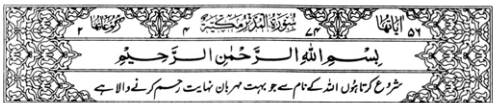 اٰیاتها ۵۶ سُوْرَةُ الْمُدَّثِّرِ مَكِّيَّةٌ ۷۴ ۴ رُكُوْعَاتُهَا ۲
بِسْمِ اللهِ الرَّحْمٰنِ الرَّحِيْمِ
شروع کرتا ہوں اللہ کے نام سے جو بہت مہربان نہایت رحم کرنے والا ہے